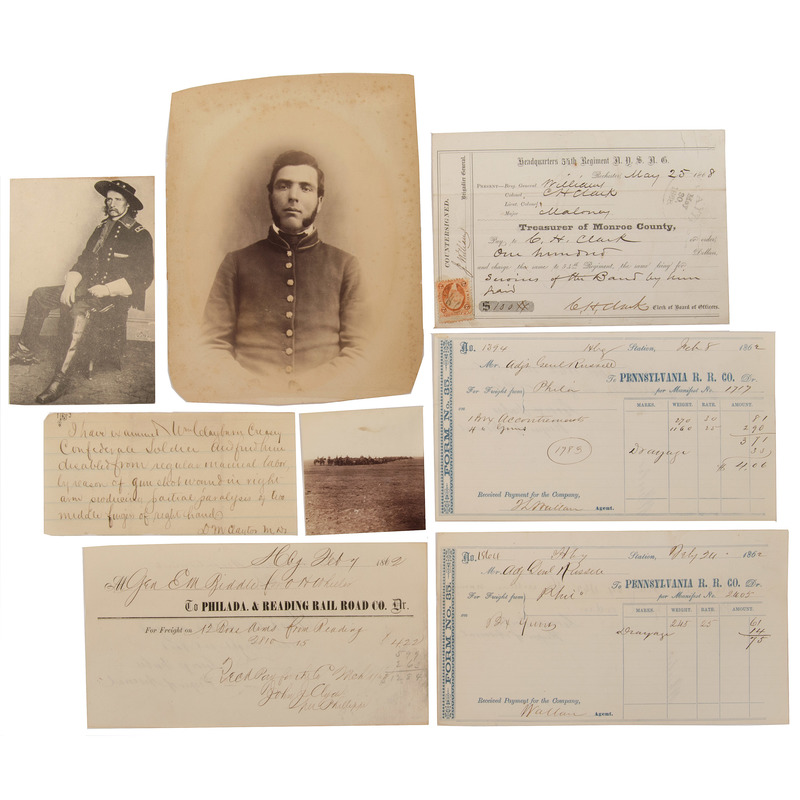 Headquarters 54th Regiment N. Y. S. N. G.
Rochester, May 25 1868
PRESENT—Brig. General Williams
Colonel, C H Clark
Lieut. Colonel
Major Maloney
Treasurer of Monroe County,
Pay to C. H. Clark or order,
One hundred Dollars,
and charge the same to 54th Regiment, the same being for
Services of the Band by him
paid
$100
C H Clark Clerk of Board of Officers.
COUNTERSIGNED,
Brigadier General.
No. 1394 Hbg Station, Feb 8 1862
Mr. Adjt Genl Russell
To PENNSYLVANIA R. R. CO. Dr.
For Freight from Phila per Manifest No. 1717
MARKS. WEIGHT. RATE AMOUNT.
1 Box Accoutrements 270 30 81
4 " Guns 1160 25 2 90
3 81
1783 Drayage
$ 4.00
Received Payment for the Company,
Wallace Agent.
FORM No. 85.
I have examined Mr Claybourn Creasy
Confederate Soldier and find him
disabled from regular manual labor,
by reason of gun shot wound in right
arm producing partial paralysis of two
middle fingers of right hand
Hbg Feb 7 1862
To PHILADA. & READING RAIL ROAD CO. Dr.
For Freight on 12 Boxes Arms from Reading
John J Clyde
No. Hbg Station, July 24 1862
Mr. Adj Genl Russell
To PENNSYLVANIA R. R. CO. Dr.
For Freight from Phila per Manifest No. 2405
MARKS. WEIGHT. RATE AMOUNT.
Bx Guns 245 25 61
Drayage 14
75
Received Payment for the Company,
Wallace Agent.
FORM No. 85.